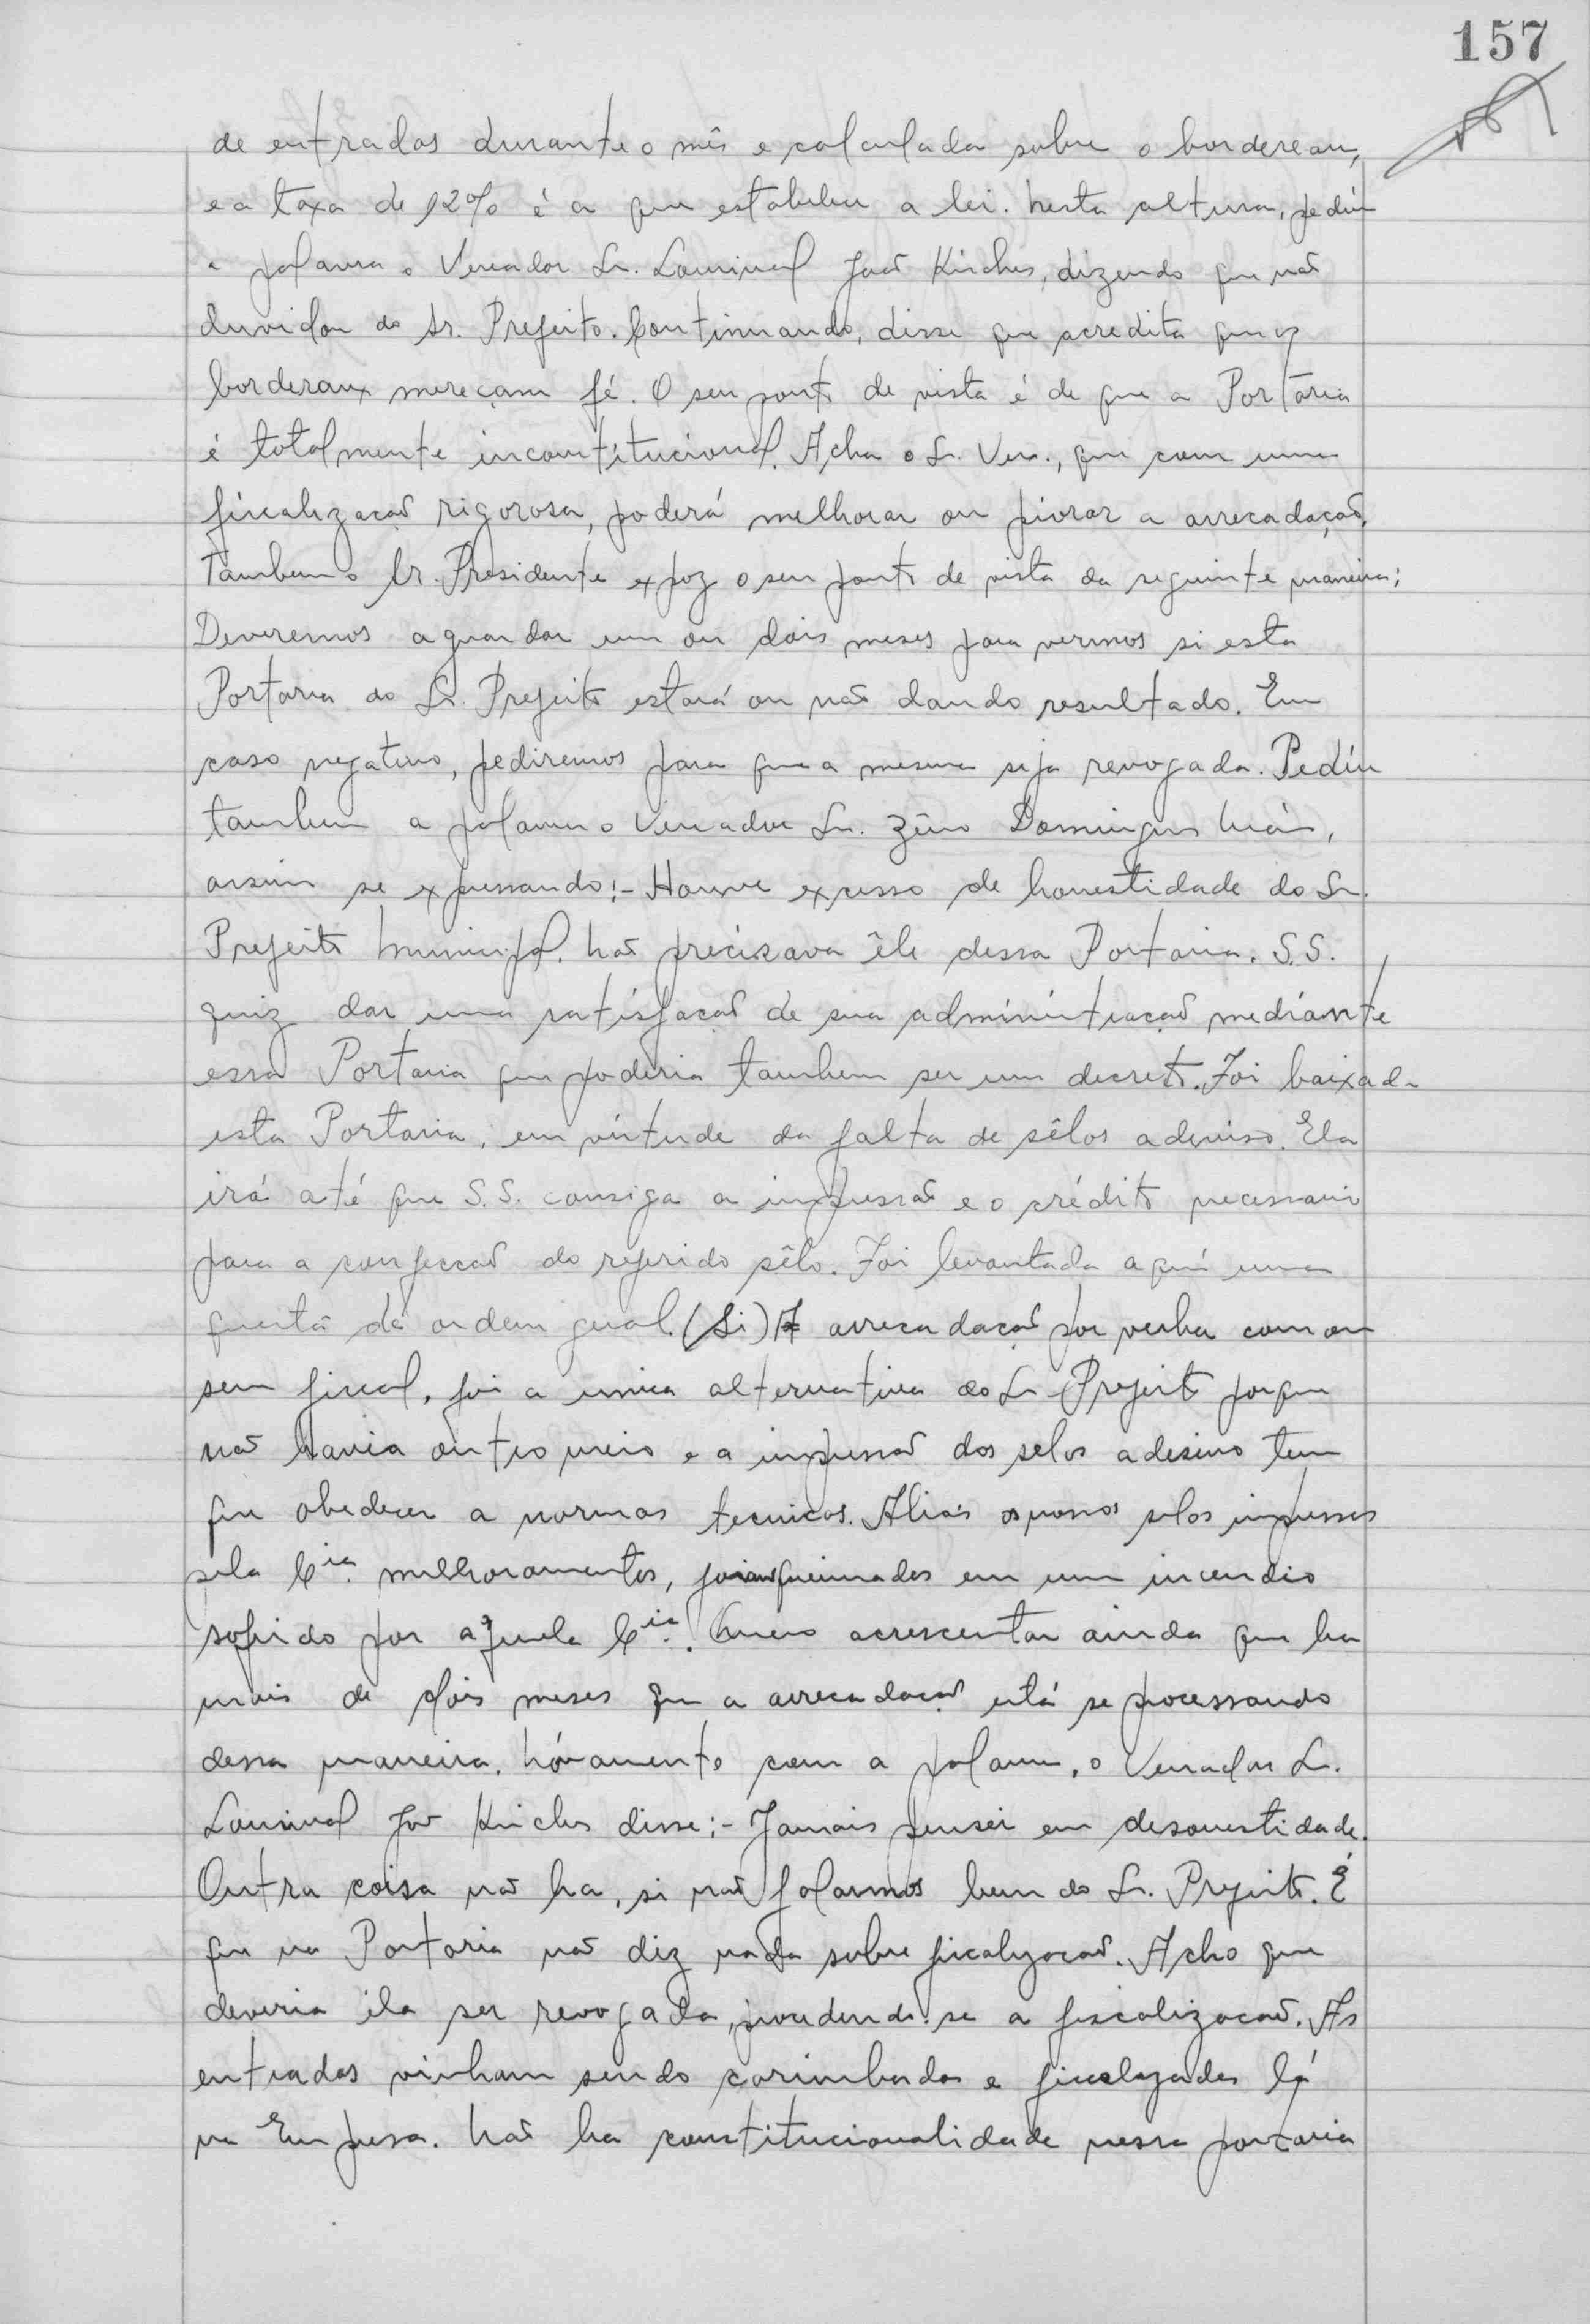 157
de entradas durante o mês e calculada sobre o bordereau,
e a taxa de 12% é a que estabeleceu a lei. Nesta altura, pediu
a palavra o Vereador Sr. Lourival João Kirches, dizendo que não
duvidou do Sr. Prefeito. Continuando, disse que acredita que os
borderaux mereçam fé. O seu ponto de vista é de que a Portaria
é totalmente inconstitucional. Acha o Sr. Ver., que com uma
fiscalização rigorosa, poderá melhorar ou piorar a arrecadação.
Tambem o Sr. Presidente expoz o seu ponto de vista da seguinte maneira:
Deveremos aguardar um ou dois meses para vermos si esta
Portaria do Sr. Prefeito estará ou não dando resultado. Em
caso negativo, pediremos para que a mesma seja revogada. Pediu
tambem a palavra o Vereador Sr. Zêno Domingues
assim se expressando:- Houve excesso de honestidade do Sr.
Prefeito Municipal. Não precisava êle dessa Portaria. S.S.
quiz dar uma satisfação de sua administração mediante
essa Portaria que poderia tambem ser um decreto. Foi baixada
esta Portaria, em virtude da falta de sêlos adesivo. Ela
irá até que S.S. consiga a impressão e o crédito necessario
para a confecção do referido sêlo. Foi levantada aqui uma
questã de ordem geral. (Si) A arrecadação por verba com ou
sem fiscal, foi a unica alternativa do Sr. Prefeito porque
não havia outro meio e a impressão dos selos adesivo tem
que obedecer a normas tecnicas. Aliás os nossos selos impressos
pela Cia. melhoramentos, foram queimados em um incendio
sofrido por aquela Cia. Quero acrescentar ainda que ha
mais de dois meses que a arrecadação está se processando
dessa maneira. Nóvamente com a palavra, o Vereador Sr.
Lourival João Kirches disse:- Jamais pensei em desonestidade.
Outra coisa não ha, si não falarmos bem do Sr. Prefeito. É
que na Portaria não diz nada sobre fiscalização. Acho que
deveria éla ser revogada, procedendo-se a fiscalização. As
entradas vinham sendo carimbadas e fiscalizadas lá
na Empresa. Não ha constitucionalidade nessa portaria